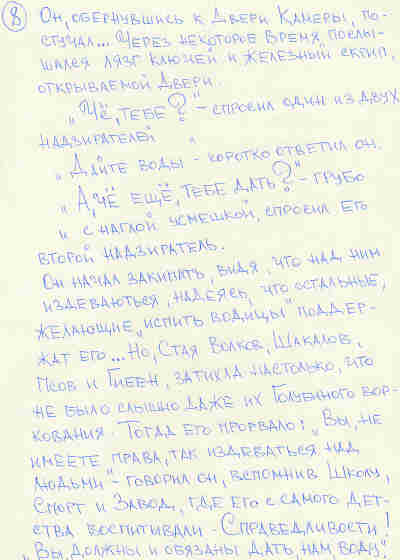 8
Он, обернувшись к Двери Камеры, по-
стучал... Через некоторое время, послы-
шался лязг ключей и железный скрип,
открываемой двери.
„Чё, тебе?" - спросил один из двух
надзирателей
„Дайте воды" - коротко ответил он.
„А, чё ещё, тебе дать?" - грубо
и с наглой усмешкой, спросил его
второй надзиратель.
Он начал закипать, видя, что над ним
издеваються, надеясь, что остальные,
желающие „испить водицы" поддер-
жат его... Но, Стая Волков, Шакалов,
Псов и Гиеен, затихла настолько, что
не было слышно даже их Голубиного вор-
кования. Тогда его прорвало: „Вы, не
имеете права, так издеваться над
людьми" - говорил он, вспомнив Школу,
Спорт и Завод, где его с самого дет-
ства воспитывали - Справедливости!
„Вы, должны и обязаны дать, нам воду"